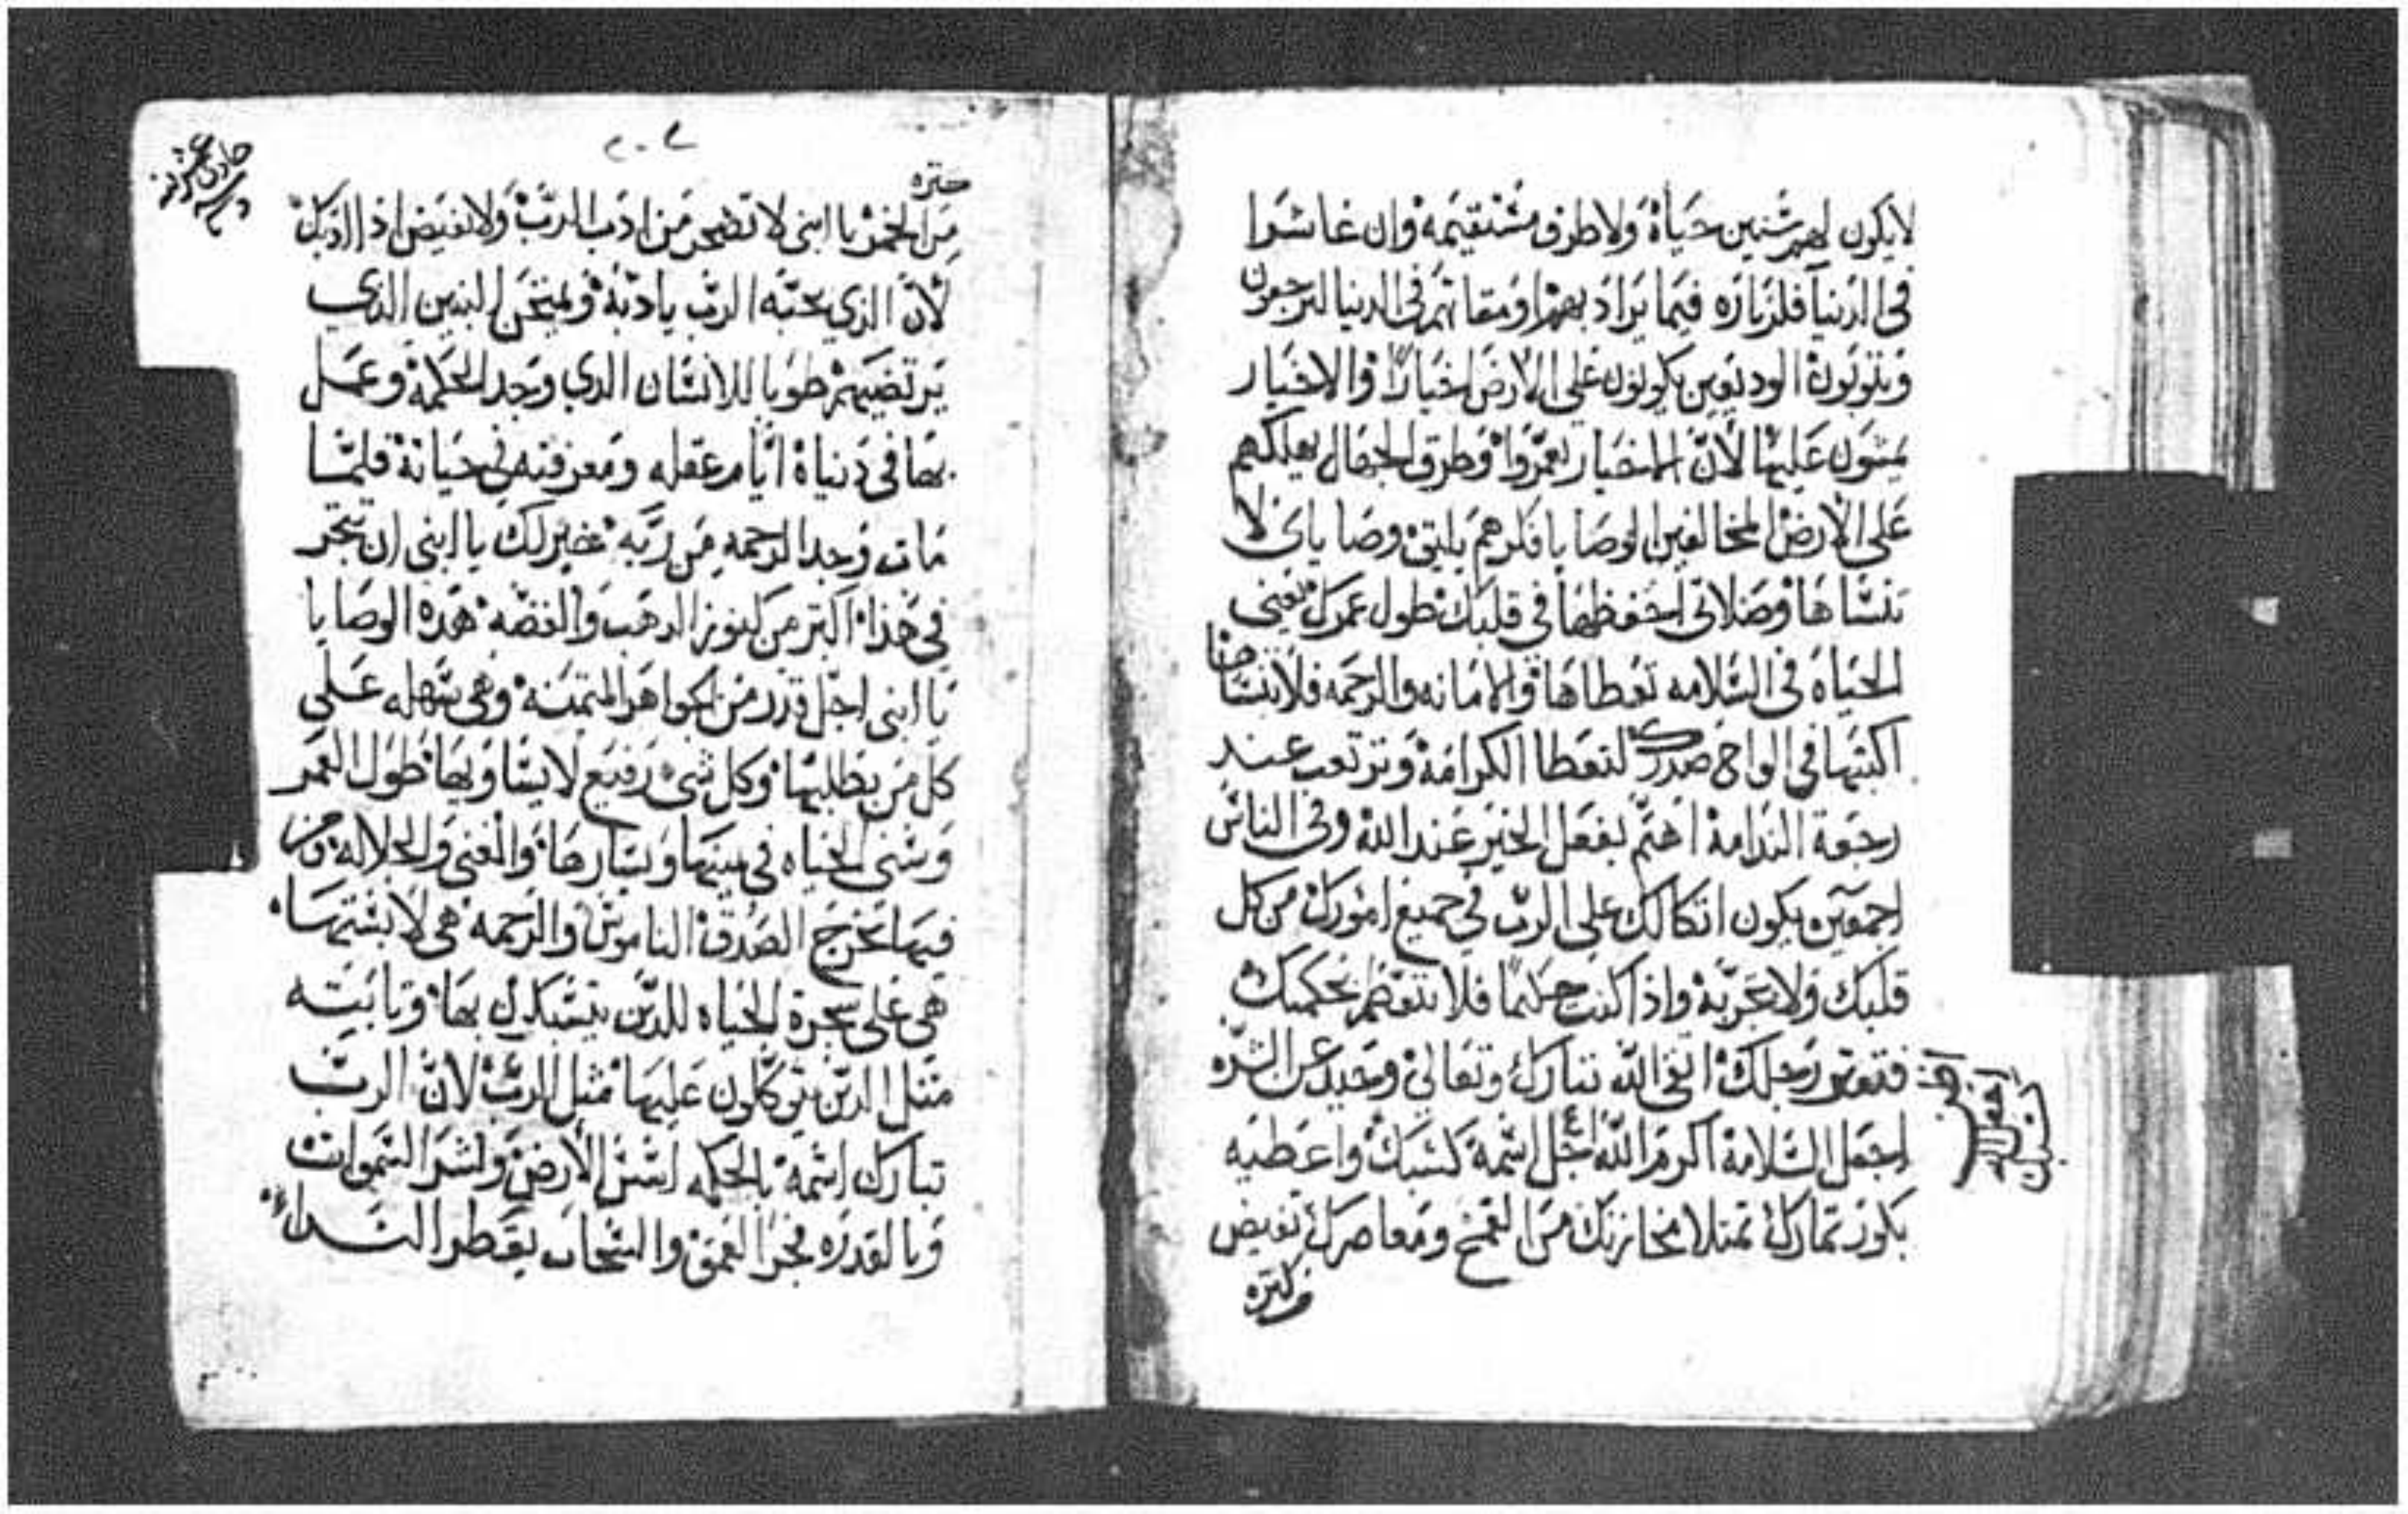 لايكون لهم سنين حياة ولا طرق مستقيمه وان عاشوا
في الدنيا فلزياره فيما يراد بهم او مقامهم في الدنيا ليرجعون
ويتوبون الوديعين يكونون على الارض اخيارا والاخيار
يبنون عليها لان يعمروا وطرق الجهال يهلكهم
على الارض المخالفين الوصايا فكرهم يابني وصاياى لا
تنساها وصلاتى احفظها في قلبك طول عمرك يعنى
الحياة في السلامه تعطاها والامانه والرحمه فلا تنساها
اكتبها في الواح صدرك لتعطا الكرامة عند
رجعة الندامة اهتم بفعل الخير عند الله وفى الناس
اجمعين يكون اتكالك على الرب في جميع امورك من كل
قلبك ولا واذا كنت حكيما فلا تتعظم بحكمتك
رجلك اتقى الله تبارك وتعالى وحيد عن الشره
اجعل السلامة اكرم الله اجل اسمه كسبك واعطيه
بكور ثمارك تمتلا مخازنك من القمح ومعاصرك تفيض
من كتره
٢٠٧
كتره
من الخمر يا ابنى لا تضجر من ادب الرب ولا تغيض اذا ادبك
لان الذي يحبه الرب يادبه ويمتحن البنين الدي
يرتضيهم طوبا للانسان الدي وجد الحكمة وعمل
بها في دنياه ايام عقله ومعرفته في حياته فلما
مات وجد الرحمه من ربه خير لك يا ابنى ان تتجر
في هذا اكتر من كنوز الدهب والفضه هده الوصايا
يا ابنى اجل قدر من الجواهر المتمنه وهى سهله على
كل من يطلبها وكل شى رفيع لا يساويها طول العمر
وسني الحياه في يمينها ويسارها والغنى والجلاله ومن
فيها يخرج الصدق الناموس والرحمه هى لابستها
هى على شجرة الحياه للدين يتمسكون بها وتابته
متل الدين يتوكلون عليها متل الرب لان الرب
تبارك اسمه بالحكمه اسس الارض السموات
وبالقدره فجر العمق والسحاب يقطر النداء